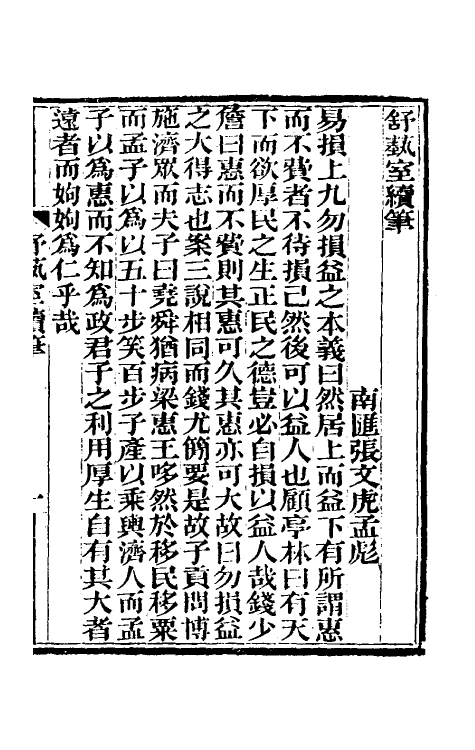 舒蓺室續筆
南匯張文虎孟彪
易損上九勿損益之本義曰然居上而益下有所謂惠
而不費者不待損己然後可以益人也顧亭林曰有天
下而欲厚民之生正民之德豈必自損以益人哉錢少
詹曰惠而不費則其惠可久其惠亦可大故曰勿損益
之大得志也案三說相同而錢尤簡要是故子貢問博
施濟眾而夫子曰堯舜猶病梁惠王哆然於移民移粟
而孟子以為以五十步笑百步子產以乘輿濟人而孟
子以為惠而不知為政君子之利用厚生自有其大者
遠者而姁姁為仁乎哉
舒蓺室續筆
一